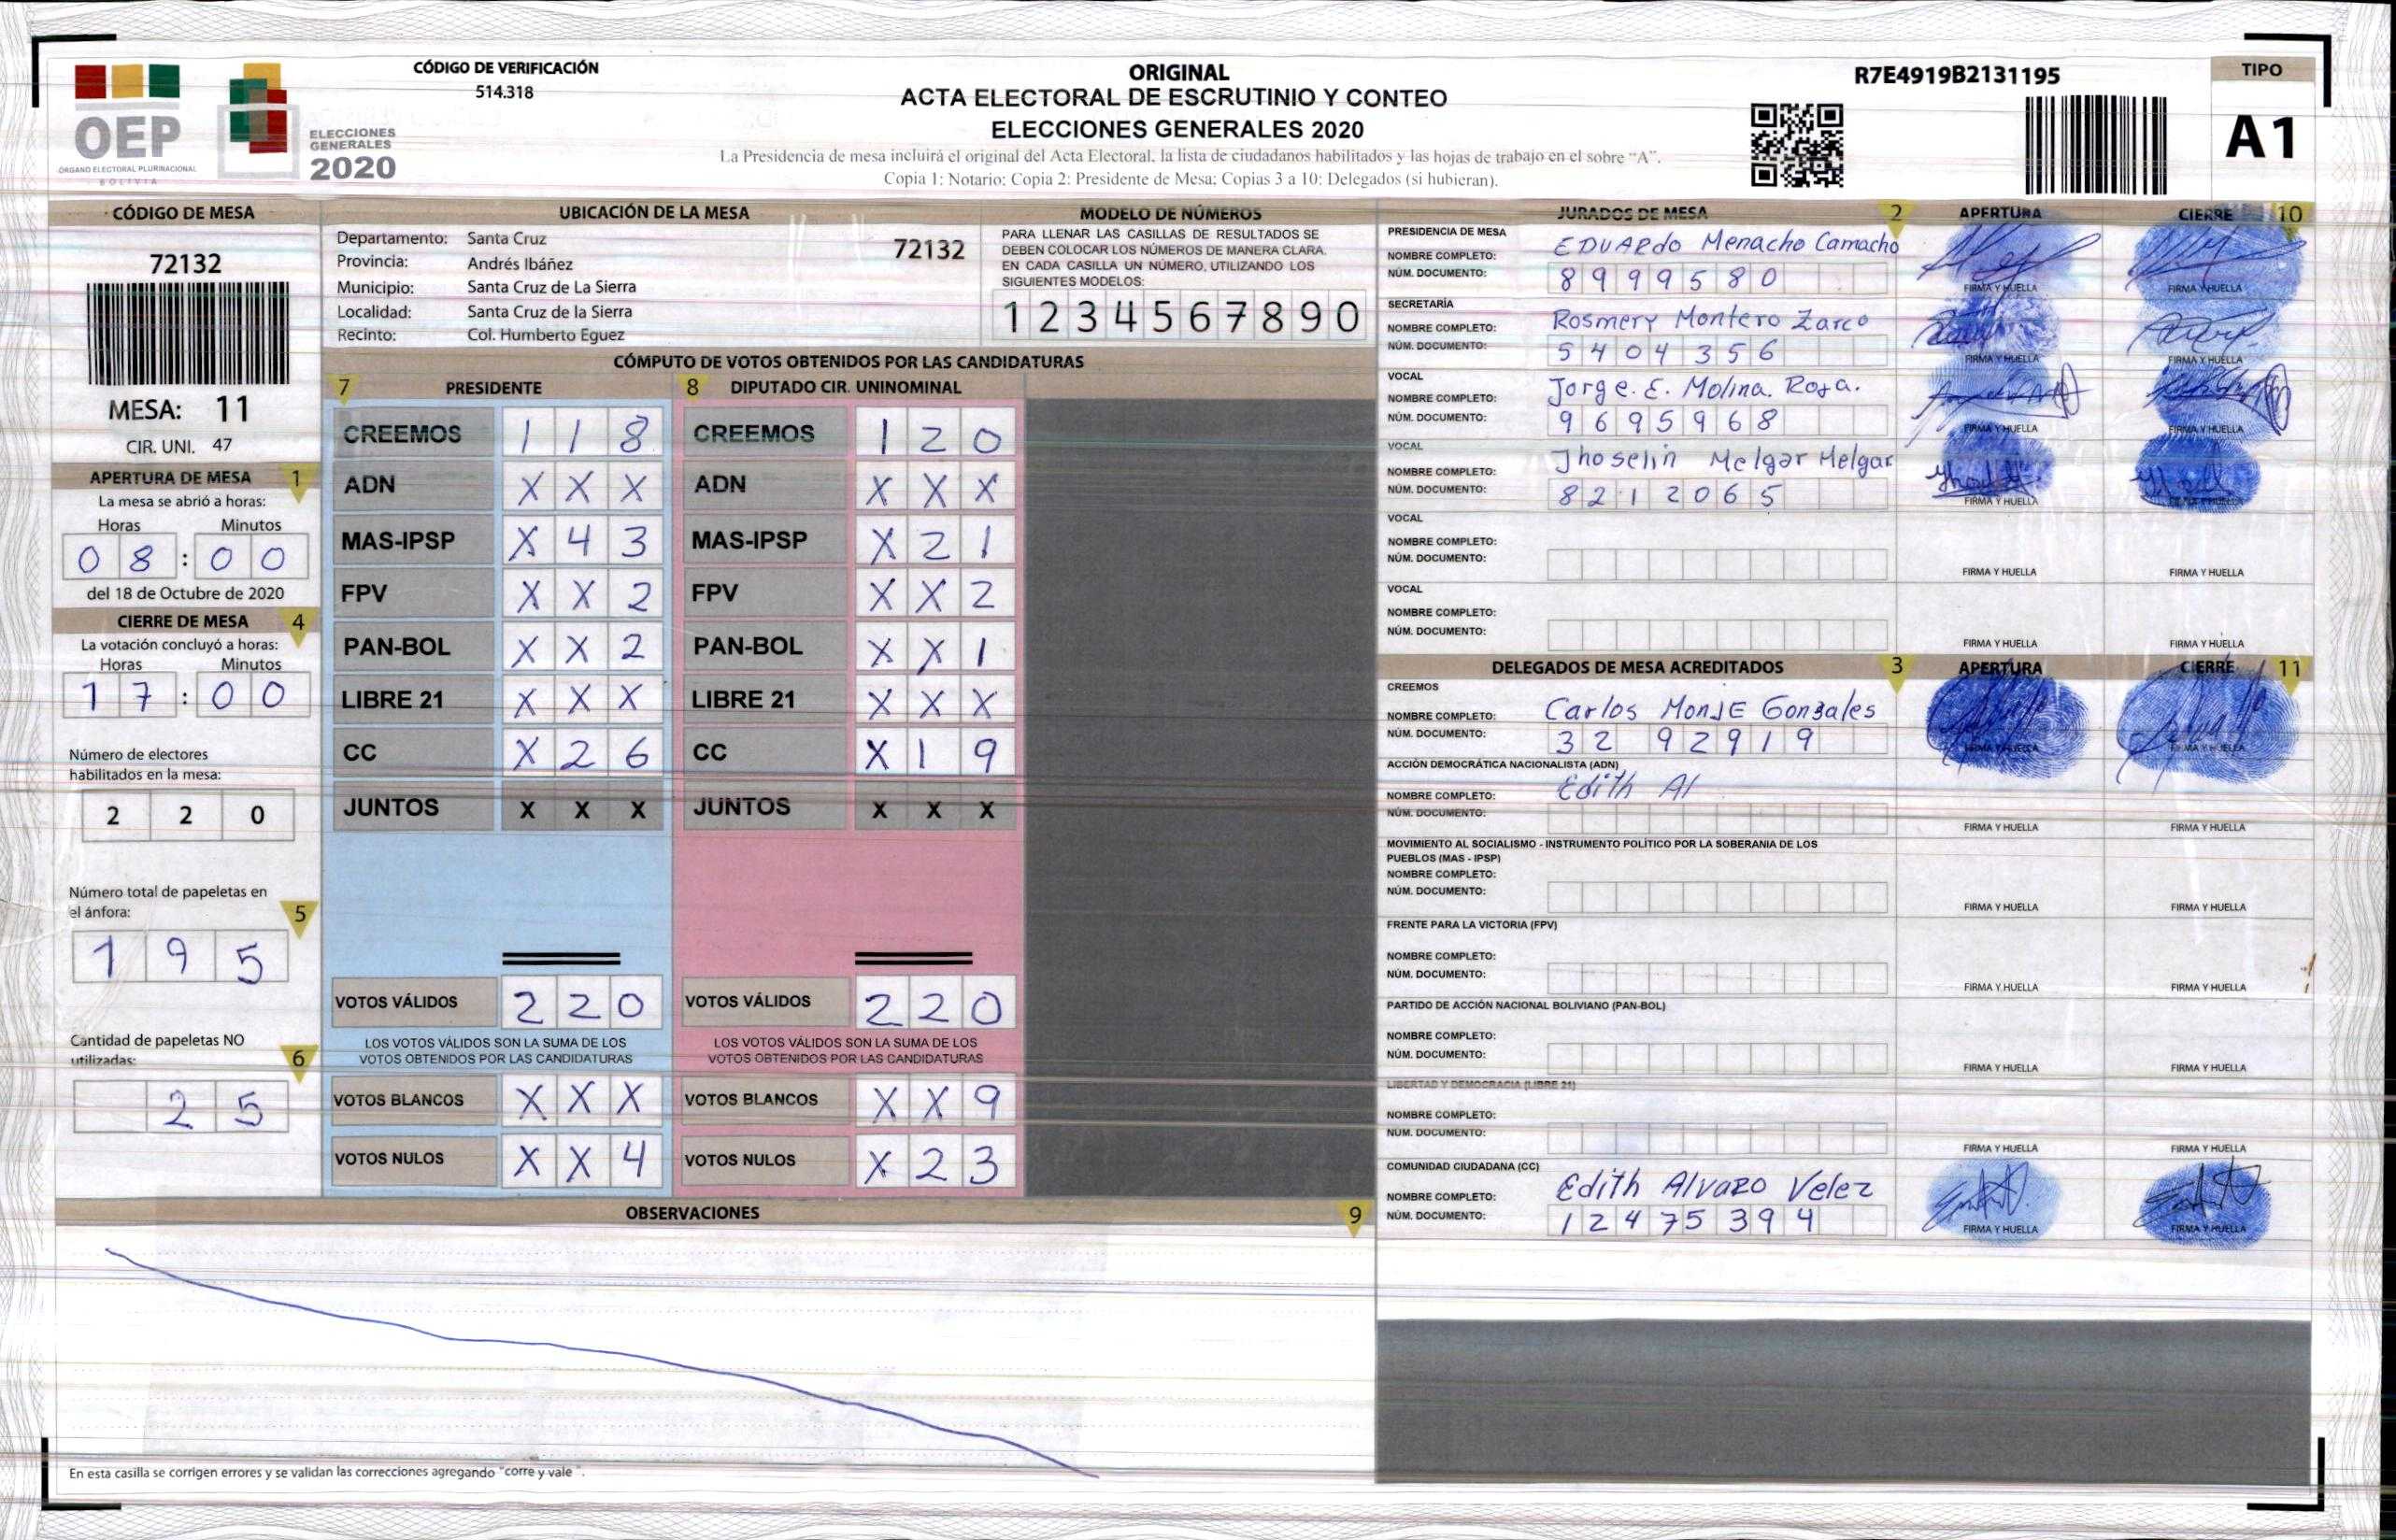 OEP
ÓRGANO ELECTORAL PLURINACIONAL
BOLIVIA
ELECCIONES
GENERALES
2020
CÓDIGO DE VERIFICACIÓN
514.318
ORIGINAL
ACTA ELECTORAL DE ESCRUTINIO Y CONTEO
ELECCIONES GENERALES 2020
La Presidencia de mesa incluirá el original del Acta Electoral, la lista de ciudadanos habilitados y las hojas de trabajo en el sobre “A”.
Copia 1: Notario; Copia 2: Presidente de Mesa; Copias 3 a 10: Delegados (si hubieran).
R7E4919B2131195
TIPO
A1
CÓDIGO DE MESA
72132
MESA: 11
CIR. UNI. 47
APERTURA DE MESA 1
La mesa se abrió a horas:
Horas Minutos
0 8 : 0 0
del 18 de Octubre de 2020
CIERRE DE MESA 4
La votación concluyó a horas:
Horas Minutos
1 7 : 0 0
Número de electores
habilitados en la mesa:
2 2 0
Número total de papeletas en
el ánfora: 5
1 9 5
Cantidad de papeletas NO
utilizadas: 6
2 5
UBICACIÓN DE LA MESA
Departamento: Santa Cruz
Provincia: Andrés Ibáñez
Municipio: Santa Cruz de La Sierra
Localidad: Santa Cruz de la Sierra
Recinto: Col. Humberto Eguez
72132
MODELO DE NÚMEROS
PARA LLENAR LAS CASILLAS DE RESULTADOS SE
DEBEN COLOCAR LOS NÚMEROS DE MANERA CLARA.
EN CADA CASILLA UN NÚMERO, UTILIZANDO LOS
SIGUIENTES MODELOS:
1 2 3 4 5 6 7 8 9 0
CÓMPUTO DE VOTOS OBTENIDOS POR LAS CANDIDATURAS
7 PRESIDENTE
CREEMOS 1 1 8
ADN X X X
MAS-IPSP X 4 3
FPV X X 2
PAN-BOL X X 2
LIBRE 21 X X X
CC X 2 6
JUNTOS X X X
VOTOS VÁLIDOS 2 2 0
LOS VOTOS VÁLIDOS SON LA SUMA DE LOS
VOTOS OBTENIDOS POR LAS CANDIDATURAS
VOTOS BLANCOS X X X
VOTOS NULOS X X 4
8 DIPUTADO CIR. UNINOMINAL
CREEMOS 1 2 0
ADN X X X
MAS-IPSP X 2 1
FPV X X 2
PAN-BOL X X 1
LIBRE 21 X X X
CC X 1 9
JUNTOS X X X
VOTOS VÁLIDOS 2 2 0
LOS VOTOS VÁLIDOS SON LA SUMA DE LOS
VOTOS OBTENIDOS POR LAS CANDIDATURAS
VOTOS BLANCOS X X 9
VOTOS NULOS X 2 3
OBSERVACIONES 9
En esta casilla se corrigen errores y se validan las correcciones agregando "corre y vale ".
JURADOS DE MESA 2 APERTURA CIERRE 10
PRESIDENCIA DE MESA
NOMBRE COMPLETO: EDUARdo Menacho Camacho
NÚM. DOCUMENTO: 8 9 9 9 5 8 0
FIRMA Y HUELLA FIRMA Y HUELLA
SECRETARÍA
NOMBRE COMPLETO: Rosmery Montero Zarco
NÚM. DOCUMENTO: 5 4 0 4 3 5 6
FIRMA Y HUELLA FIRMA Y HUELLA
VOCAL
NOMBRE COMPLETO: Jorge. E. Molina. Roja.
NÚM. DOCUMENTO: 9 6 9 5 9 6 8
FIRMA Y HUELLA FIRMA Y HUELLA
VOCAL
NOMBRE COMPLETO: Jhoselin Melgar Melgar
NÚM. DOCUMENTO: 8 2 1 2 0 6 5
FIRMA Y HUELLA FIRMA Y HUELLA
VOCAL
NOMBRE COMPLETO:
NÚM. DOCUMENTO:
FIRMA Y HUELLA FIRMA Y HUELLA
VOCAL
NOMBRE COMPLETO:
NÚM. DOCUMENTO:
FIRMA Y HUELLA FIRMA Y HUELLA
DELEGADOS DE MESA ACREDITADOS 3 APERTURA CIERRE 11
CREEMOS
NOMBRE COMPLETO: Carlos MonJE Gonzales
NÚM. DOCUMENTO: 3 2 9 2 9 1 9
FIRMA Y HUELLA FIRMA Y HUELLA
ACCIÓN DEMOCRÁTICA NACIONALISTA (ADN)
NOMBRE COMPLETO: Edith Al
NÚM. DOCUMENTO:
FIRMA Y HUELLA FIRMA Y HUELLA
MOVIMIENTO AL SOCIALISMO - INSTRUMENTO POLÍTICO POR LA SOBERANIA DE LOS
PUEBLOS (MAS - IPSP)
NOMBRE COMPLETO:
NÚM. DOCUMENTO:
FIRMA Y HUELLA FIRMA Y HUELLA
FRENTE PARA LA VICTORIA (FPV)
NOMBRE COMPLETO:
NÚM. DOCUMENTO:
FIRMA Y HUELLA FIRMA Y HUELLA
PARTIDO DE ACCIÓN NACIONAL BOLIVIANO (PAN-BOL)
NOMBRE COMPLETO:
NÚM. DOCUMENTO:
FIRMA Y HUELLA FIRMA Y HUELLA
LIBERTAD Y DEMOCRACIA (LIBRE 21)
NOMBRE COMPLETO:
NÚM. DOCUMENTO:
FIRMA Y HUELLA FIRMA Y HUELLA
COMUNIDAD CIUDADANA (CC)
NOMBRE COMPLETO: Edith Alvaro Velez
NÚM. DOCUMENTO: 1 2 4 7 5 3 9 4
FIRMA Y HUELLA FIRMA Y HUELLA